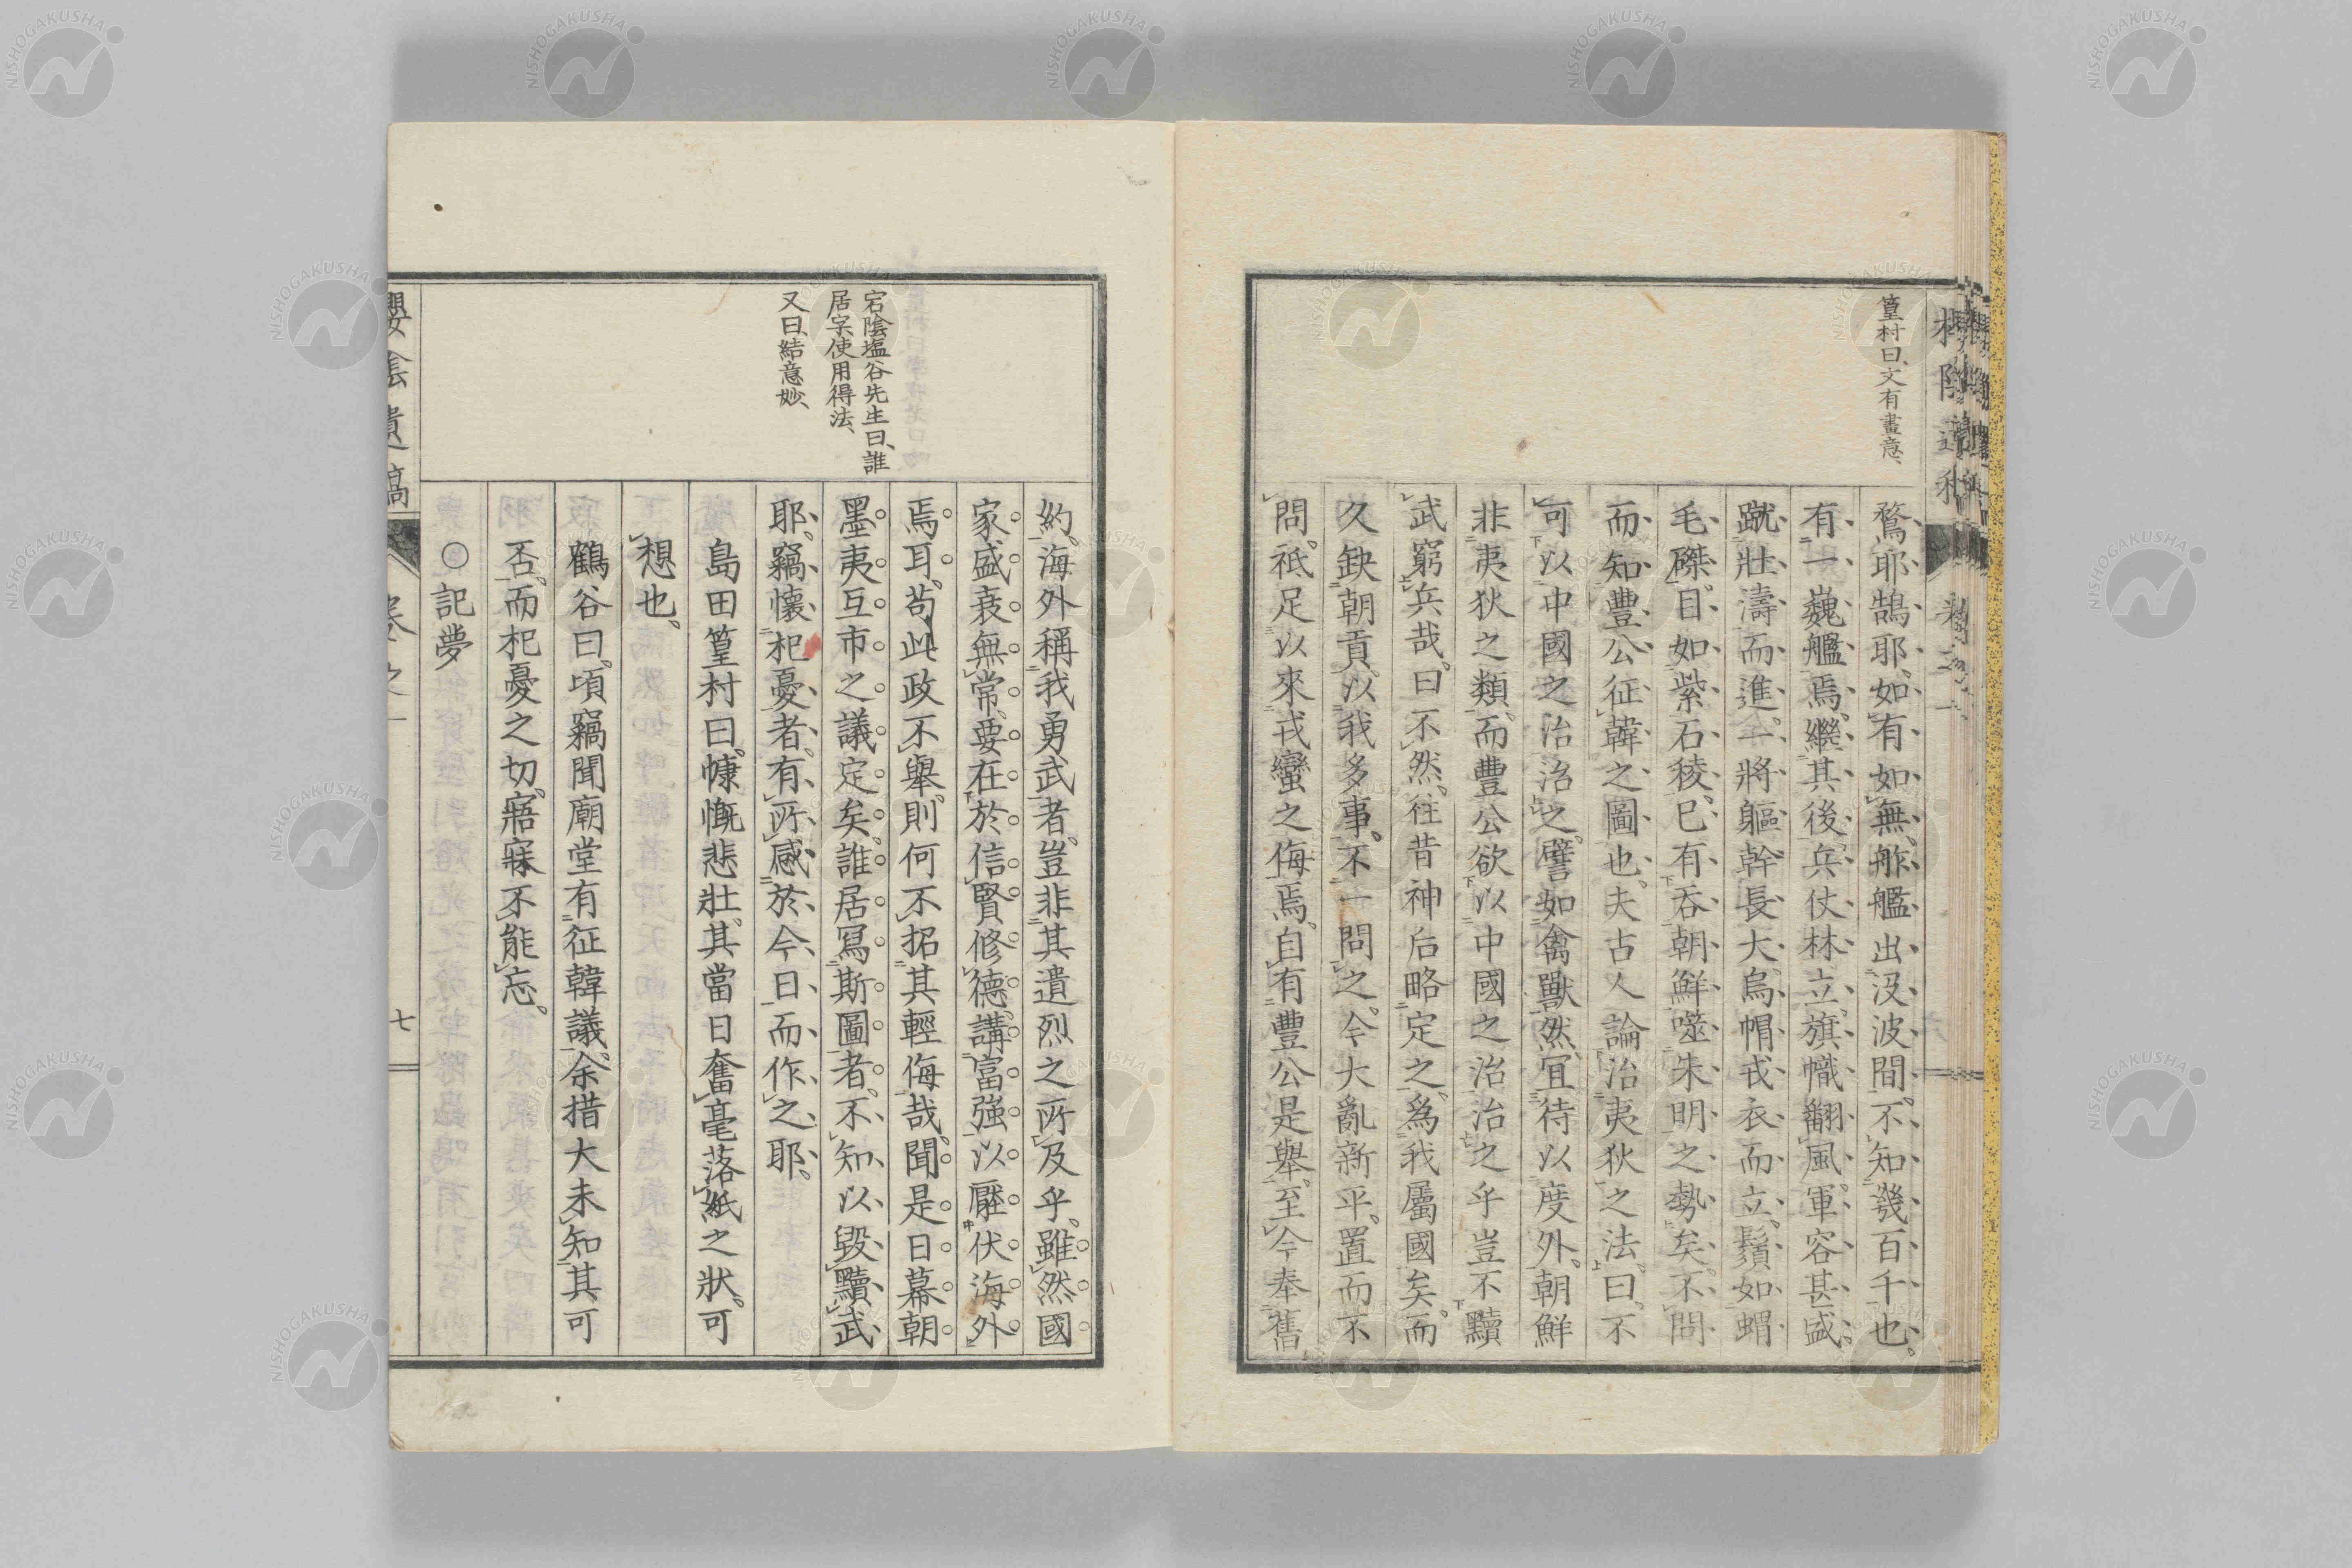 篁村曰、文有畫意、
鶩耶鵠耶、如有如無、舴艦出沒波間、不知幾百千也。
有一巍艦焉、繼其後、兵仗林立、旗幟翻風、軍容甚盛。
蹴壯濤而進。一將軀幹長大、烏帽戎衣而立、鬚如蝟
毛磔。目如紫石稜、已有呑朝鮮噬朱明之勢矣、不問
而知豐公征韓之圖也。夫古人論治夷狄之法曰、不
可以中國之治治之、譬如禽獸然、宜待以度外。朝鮮
非夷狄之類、而豐公欲以中國之治治之乎豈不黷
武窮兵哉。曰不然、往昔神后略定之、爲我屬國矣。而
久缺朝貢、以我多事、不一問之。今大亂新平、置而不
問。祇足以來戎蠻之侮焉、自有豐公是舉、至今奉舊
約、海外稱我勇武者、豈非其遺烈之所及乎。雖然國
家盛衰無常、要在於信賢修德、講富強以壓伏海外
焉耳。苟此政不舉、則何不招其輕侮哉。聞是日幕朝
墨夷互市之議定矣。誰居寫斯圖者、不知以毀黷武
耶、竊懷杞憂者、有所感於今日而作之耶。
島田篁村曰。慷慨悲壯。其當日奮毫落紙之狀。可
想也。
鶴谷曰。頃竊聞廟堂有征韓議。余措大未知其可
否。而杞憂之切。寤寐不能忘。
○記夢
宕陰塩谷先生曰、誰
居字、使用得法、
又曰、結意妙、
七